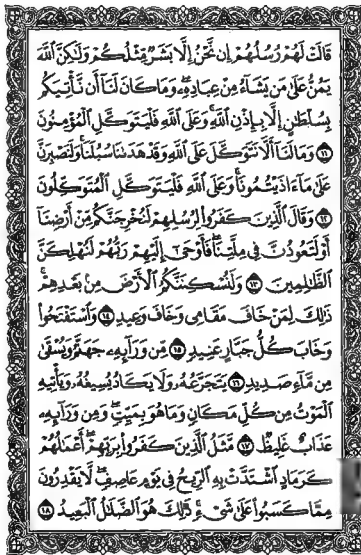 قَالَتْ لَهُمْ رُسُلُهُمْ إِن نَّحْنُ إِلَّا بَشَرٌ مِّثْلُكُمْ وَلَٰكِنَّ ٱللَّهَ
يَمُنُّ عَلَىٰ مَن يَشَآءُ مِنْ عِبَادِهِۦ وَمَا كَانَ لَنَآ أَن نَّأْتِيَكُم
بِسُلْطَٰنٍ إِلَّا بِإِذْنِ ٱللَّهِ وَعَلَى ٱللَّهِ فَلْيَتَوَكَّلِ ٱلْمُؤْمِنُونَ
١١ وَمَا لَنَآ أَلَّا نَتَوَكَّلَ عَلَى ٱللَّهِ وَقَدْ هَدَىٰنَا سُبُلَنَا وَلَنَصْبِرَنَّ
عَلَىٰ مَآ ءَاذَيْتُمُونَا وَعَلَى ٱللَّهِ فَلْيَتَوَكَّلِ ٱلْمُتَوَكِّلُونَ
١٢ وَقَالَ ٱلَّذِينَ كَفَرُوا۟ لِرُسُلِهِمْ لَنُخْرِجَنَّكُم مِّنْ أَرْضِنَآ
أَوْ لَتَعُودُنَّ فِى مِلَّتِنَا فَأَوْحَىٰٓ إِلَيْهِمْ رَبُّهُمْ لَنُهْلِكَنَّ
ٱلظَّٰلِمِينَ ١٣ وَلَنُسْكِنَنَّكُمُ ٱلْأَرْضَ مِنۢ بَعْدِهِمْ
ذَٰلِكَ لِمَنْ خَافَ مَقَامِى وَخَافَ وَعِيدِ ١٤ وَٱسْتَفْتَحُوا۟
وَخَابَ كُلُّ جَبَّارٍ عَنِيدٍ ١٥ مِّن وَرَآئِهِۦ جَهَنَّمُ وَيُسْقَىٰ
مِن مَّآءٍ صَدِيدٍ ١٦ يَتَجَرَّعُهُۥ وَلَا يَكَادُ يُسِيغُهُۥ وَيَأْتِيهِ
ٱلْمَوْتُ مِن كُلِّ مَكَانٍ وَمَا هُوَ بِمَيِّتٍ وَمِن وَرَآئِهِۦ
عَذَابٌ غَلِيظٌ ١٧ مَّثَلُ ٱلَّذِينَ كَفَرُوا۟ بِرَبِّهِمْ أَعْمَٰلُهُمْ
كَرَمَادٍ ٱشْتَدَّتْ بِهِ ٱلرِّيحُ فِى يَوْمٍ عَاصِفٍ لَّا يَقْدِرُونَ
مِمَّا كَسَبُوا۟ عَلَىٰ شَىْءٍ ذَٰلِكَ هُوَ ٱلضَّلَٰلُ ٱلْبَعِيدُ ١٨